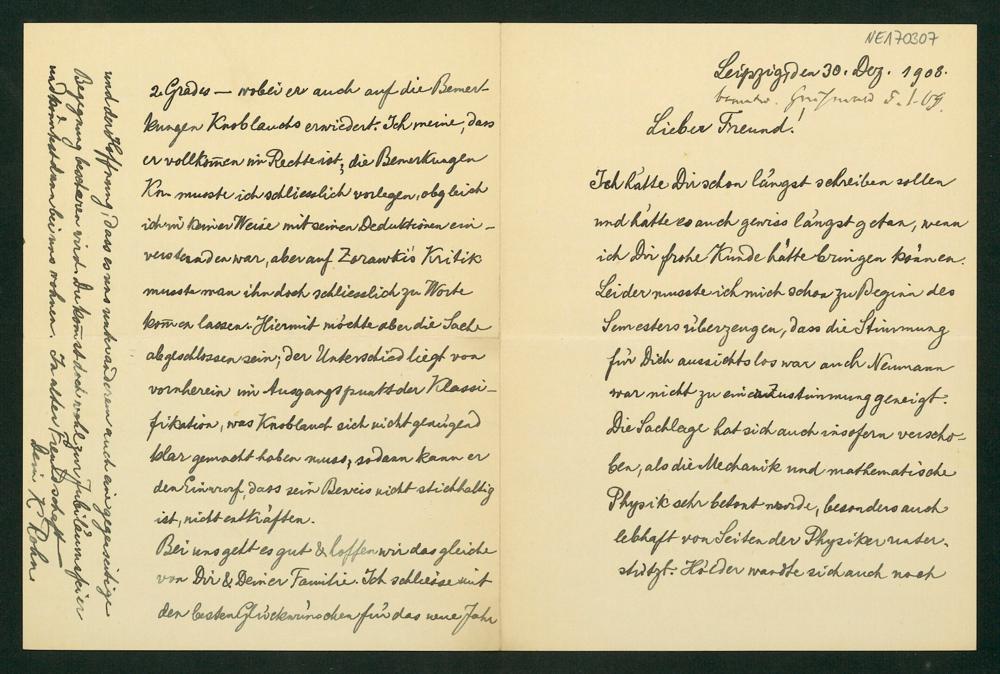 NE170307
Leipzig, den 30. Dez. 1908.
Greifswald 5. I. 09.
Lieber Freund!
Ich hätte Dir schon längst schreiben sollen
und hätte es auch gewiss längst getan, wenn
ich Dir frohe Kunde hätte bringen können.
Leider musste ich mich schon zu Beginn des
Semesters überzeugen, dass die Stimmung
für Dich aussichtslos war auch Neumann
war nicht zu einer Zustimmung geneigt.
Die Sachlage hat sich auch insofern verscho-
ben, als die Mechanik und mathematische
Physik sehr betont wurde, besonders auch
lebhaft von Seiten der Physiker unter-
stützt. Hölder wandte sich auch noch
2. Grades — wobei er auch auf die Bemer-
kungen Knoblauchs erwidert. Ich meine, dass
er vollkommen im Rechte ist; die Bemerkungen
Kn. musste ich schliesslich vorlegen, obgleich
ich in keiner Weise mit seinen Deduktionen ein-
verstanden war, aber auf Zorawskis Kritik
musste man ihn doch schliesslich zu Worte
kom̄en lassen. Hiermit möchte aber die Sache
abgeschlossen sein; der Unterschied liegt von
vornherein im Ausgangspunkt der Klassi-
fikation, was Knoblauch sich nicht genügend
klar gemacht haben muss, sodann kann er
den Einwurf, dass sein Beweis nicht stichhaltig
ist, nicht entkräften.
Bei uns geht es gut & hoffen wir das gleiche
von Dir & Deiner Familie. Ich schliesse mit
den besten Glückwünschen für das neue Jahr
und der Hoffnung, dass es uns unter anderen auch eine gegenseitige
Begegnung bescheren wird. Du kom̄st doch wohl zur Jubiläumsfeier
und kannst dann bei uns wohnen. In alter Freundschaft
Dein K Rohn